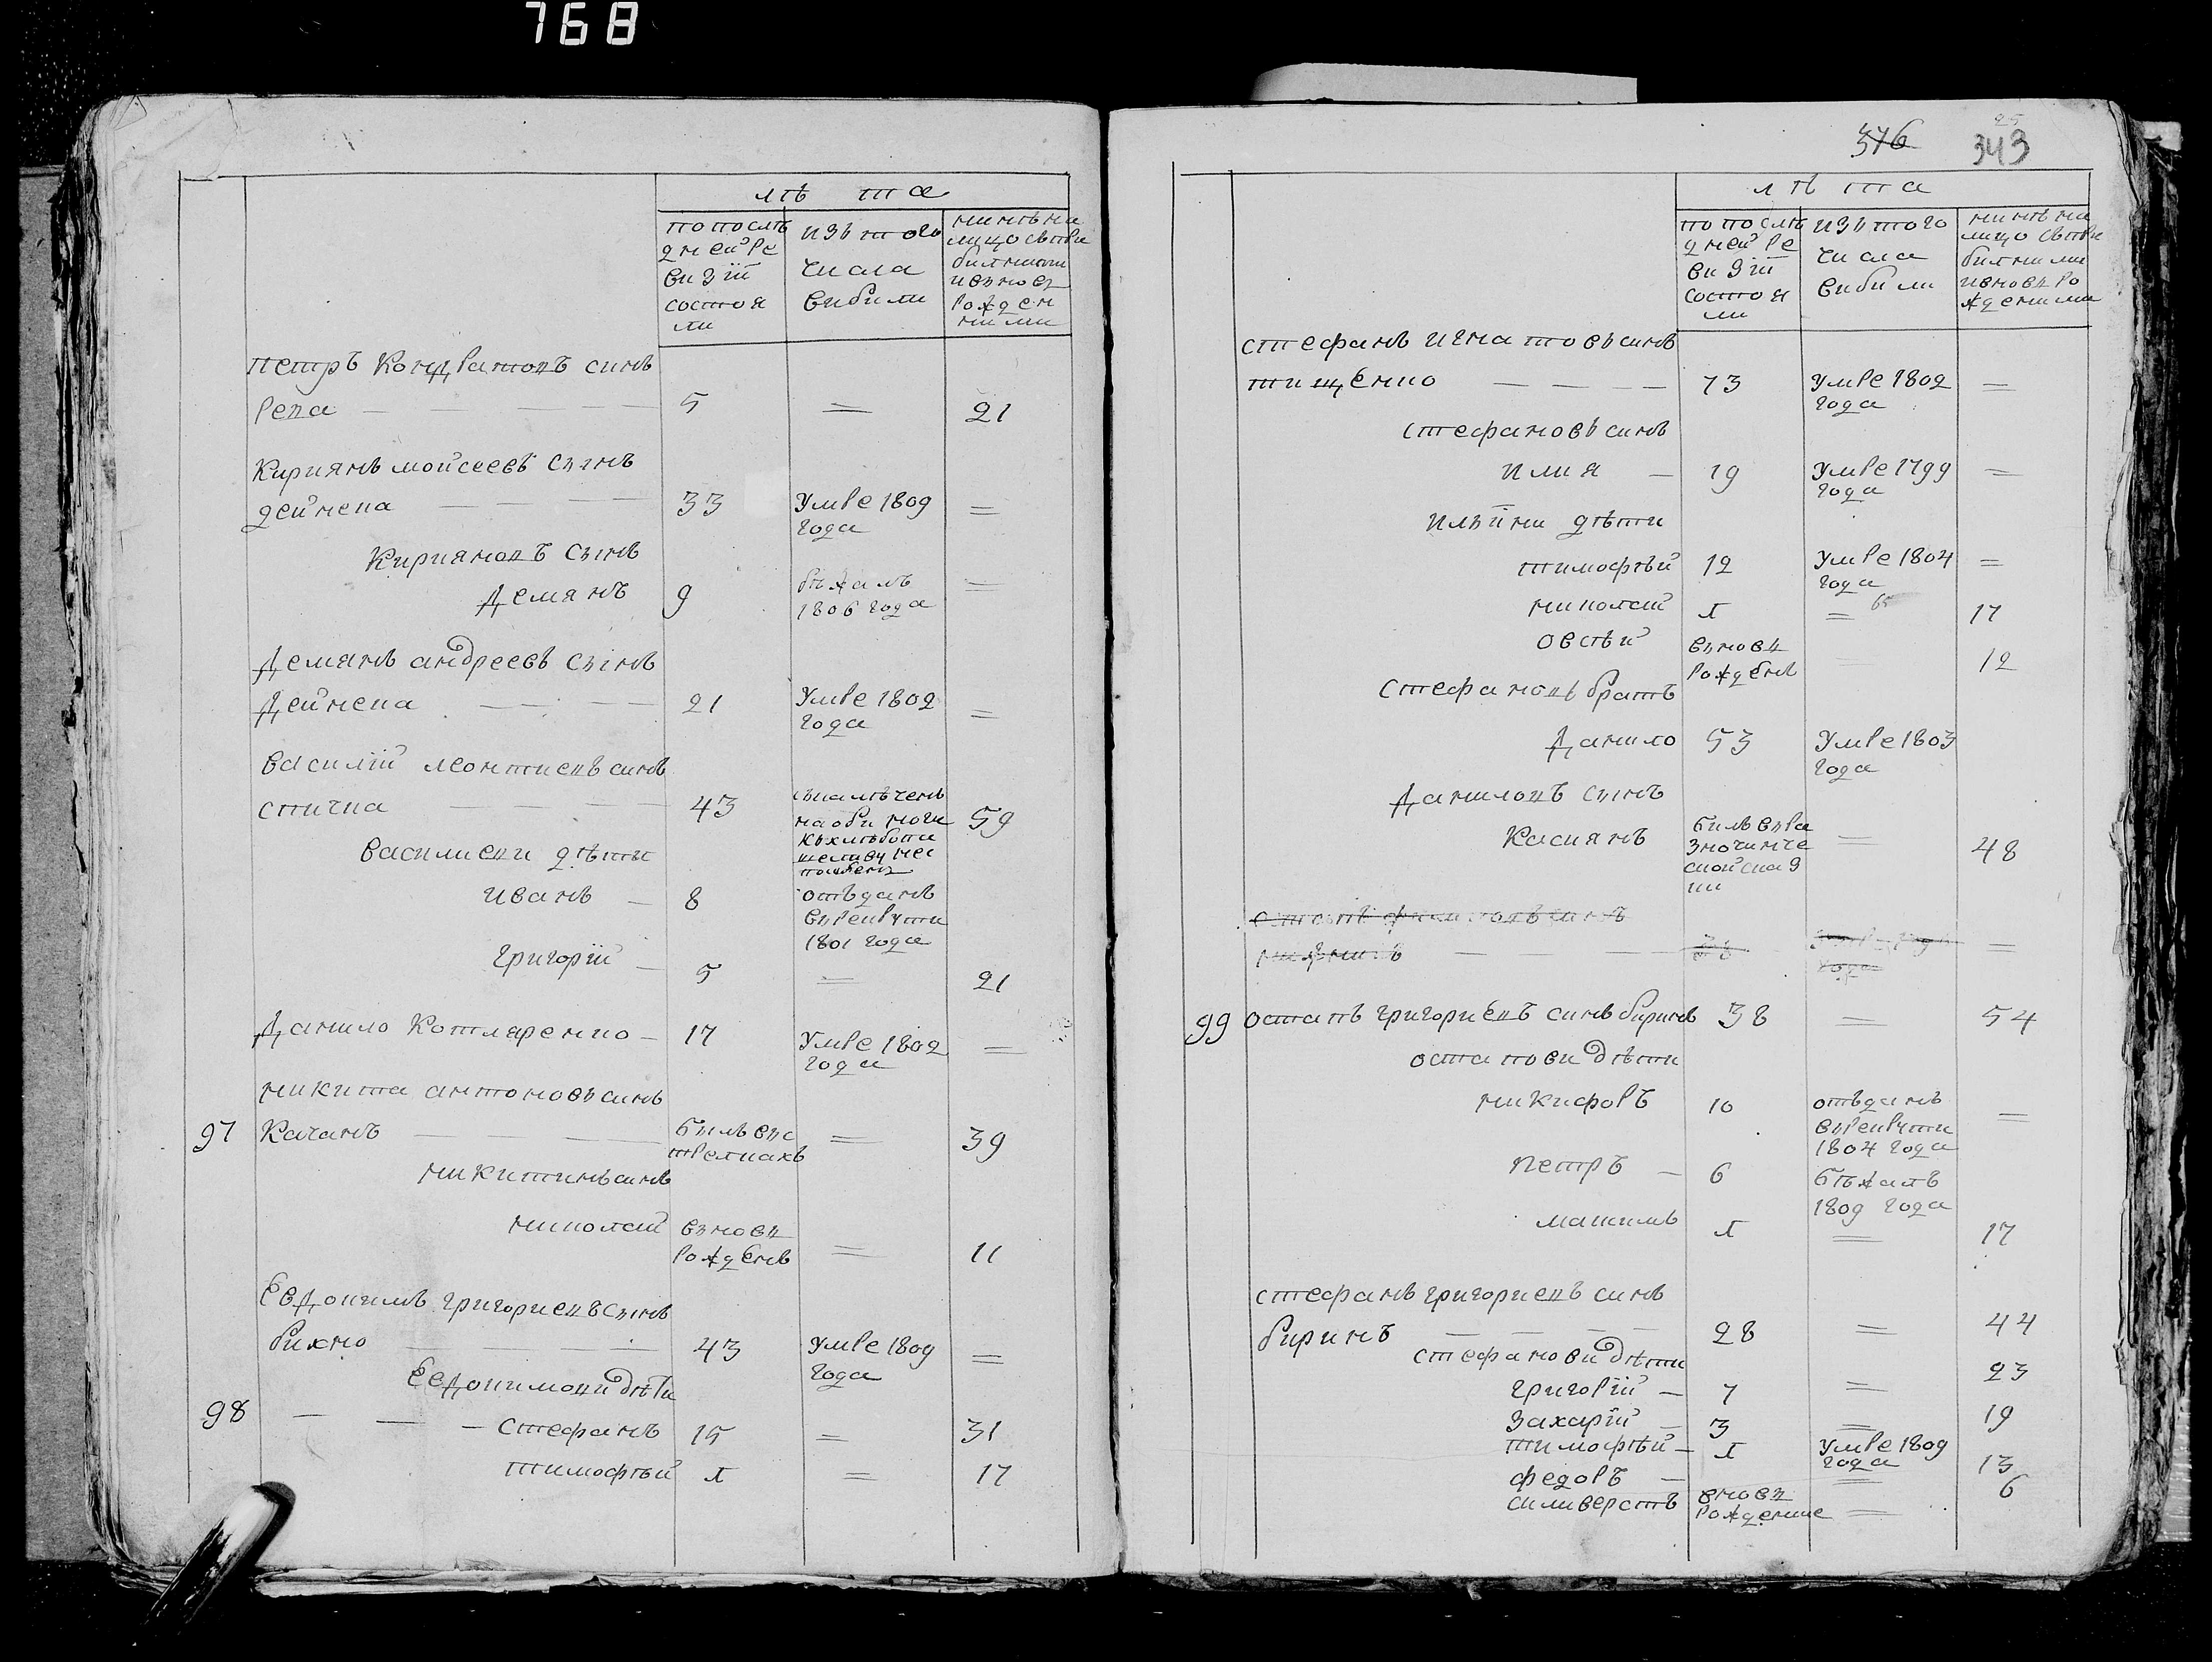 768
лѣ та
по послѣ
дней ре
визіи
состоя
ли
изъ того
числа
выбыли
нинѣ на
лицо съ при
Петръ Кондратовъ синъ
Репа — — — — 5 = 21
Кириянъ Моисеевъ сынъ
Дейнека — — — 33 Умре 1809 =
года
Кирияновъ сынъ
Демянъ 9 бѣжалъ =
1806 года
Демянъ андреевъ сынъ
Дейнека — — — — 21 Умре 1802 =
года
Василій Леонтиевъ синъ
Спичка — — — — 43 59
Василиеви дѣти
иванъ — 8 отъданъ
в рекрути
1801 года
григорій — 5 = 21
Данило Котляренко — 17 Умре 1802 =
года
Никита антоновъ синъ
97 Качанъ — — — былъ в с = 39
трелкахъ
Никитинъ синъ
Николай вновь
рожденъ = 11
Евдокимъ григориевъ сынъ
бихно — — — — 43 Умре 1809 =
года
Евдокимови дѣти
98 — — — Стефанъ 15 = 31
тимофѣй л = 17
376 25
343
лѣ та
по послѣ
дней ре
визіи
состоя
ли
изъ того
числа
вибыли
нинѣ на
лицо съ при
били ми
и вновь ро
жденими
Стефанъ игнатовъ синъ
тищенко — — — — 73 Умре 1802 =
года
Стефановъ синъ
илия — 19 Умре 1799 =
года
ильіни дѣти
тимофѣй 12 Умре 1804 =
года
Николай л = 17
овсѣй вновь
рожденъ 12
Стефановъ братъ
Данило 53 Умре 1803
года
Даниловъ сынъ
Касиянъ билъ в ра = 48
99 остапъ григориевъ синъ биринъ 38 = 54
остапови дѣти
Никифоръ 10 отъданъ =
в рекрути
1804 года
Петръ — 6 бѣжалъ
1809 года
л = 17
Стефанъ григориевъ синъ
биринъ — — — — 28 = 44
Стефанови дѣти
григорій — 7 = 23
захарій — 3 = 19
тимофѣй — л Умре 1809
года
федоръ — = 13
силиверстъ вновь
рождение = 6